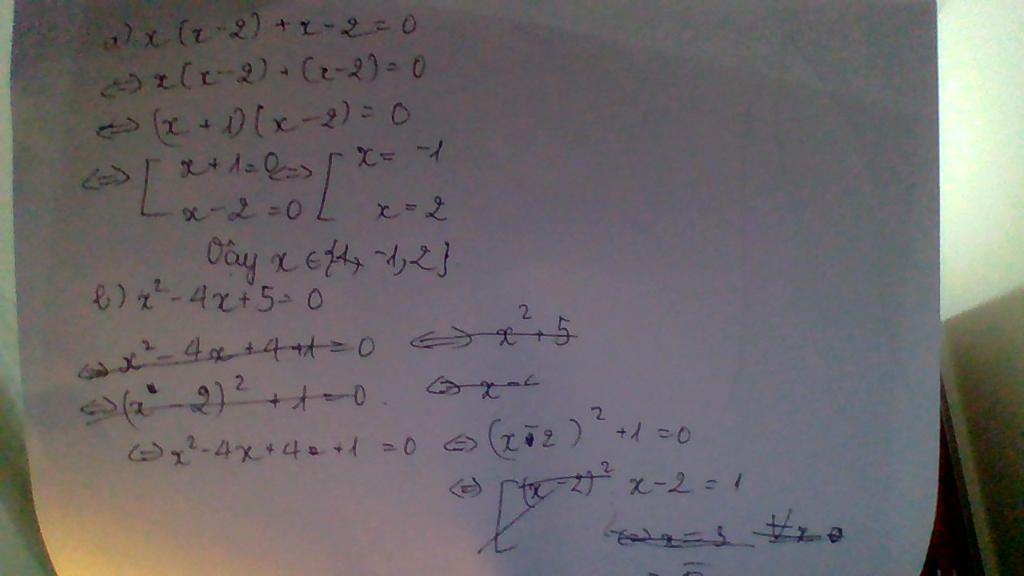 a) x(x-2)+x-2=0
⇔ x(x-2)+(x-2)=0
⇔ (x+1)(x-2)=0
⇔ [ x+1=0 ⇔ [ x= -1
x-2=0 x=2
Vậy x ∈ { -1, 2}
b) x² - 4x+5=0
⇔ x² - 4x+4+1=0 ⇔ x²+5
⇔ (x - 2)² + 1=0 ⇔ x =
⇔ x²-4x+4+1 =0 ⇔ (x-2)² +1 =0
⇔ [ (x-2)² x-2 = 1
⇔ x=3 ∀x